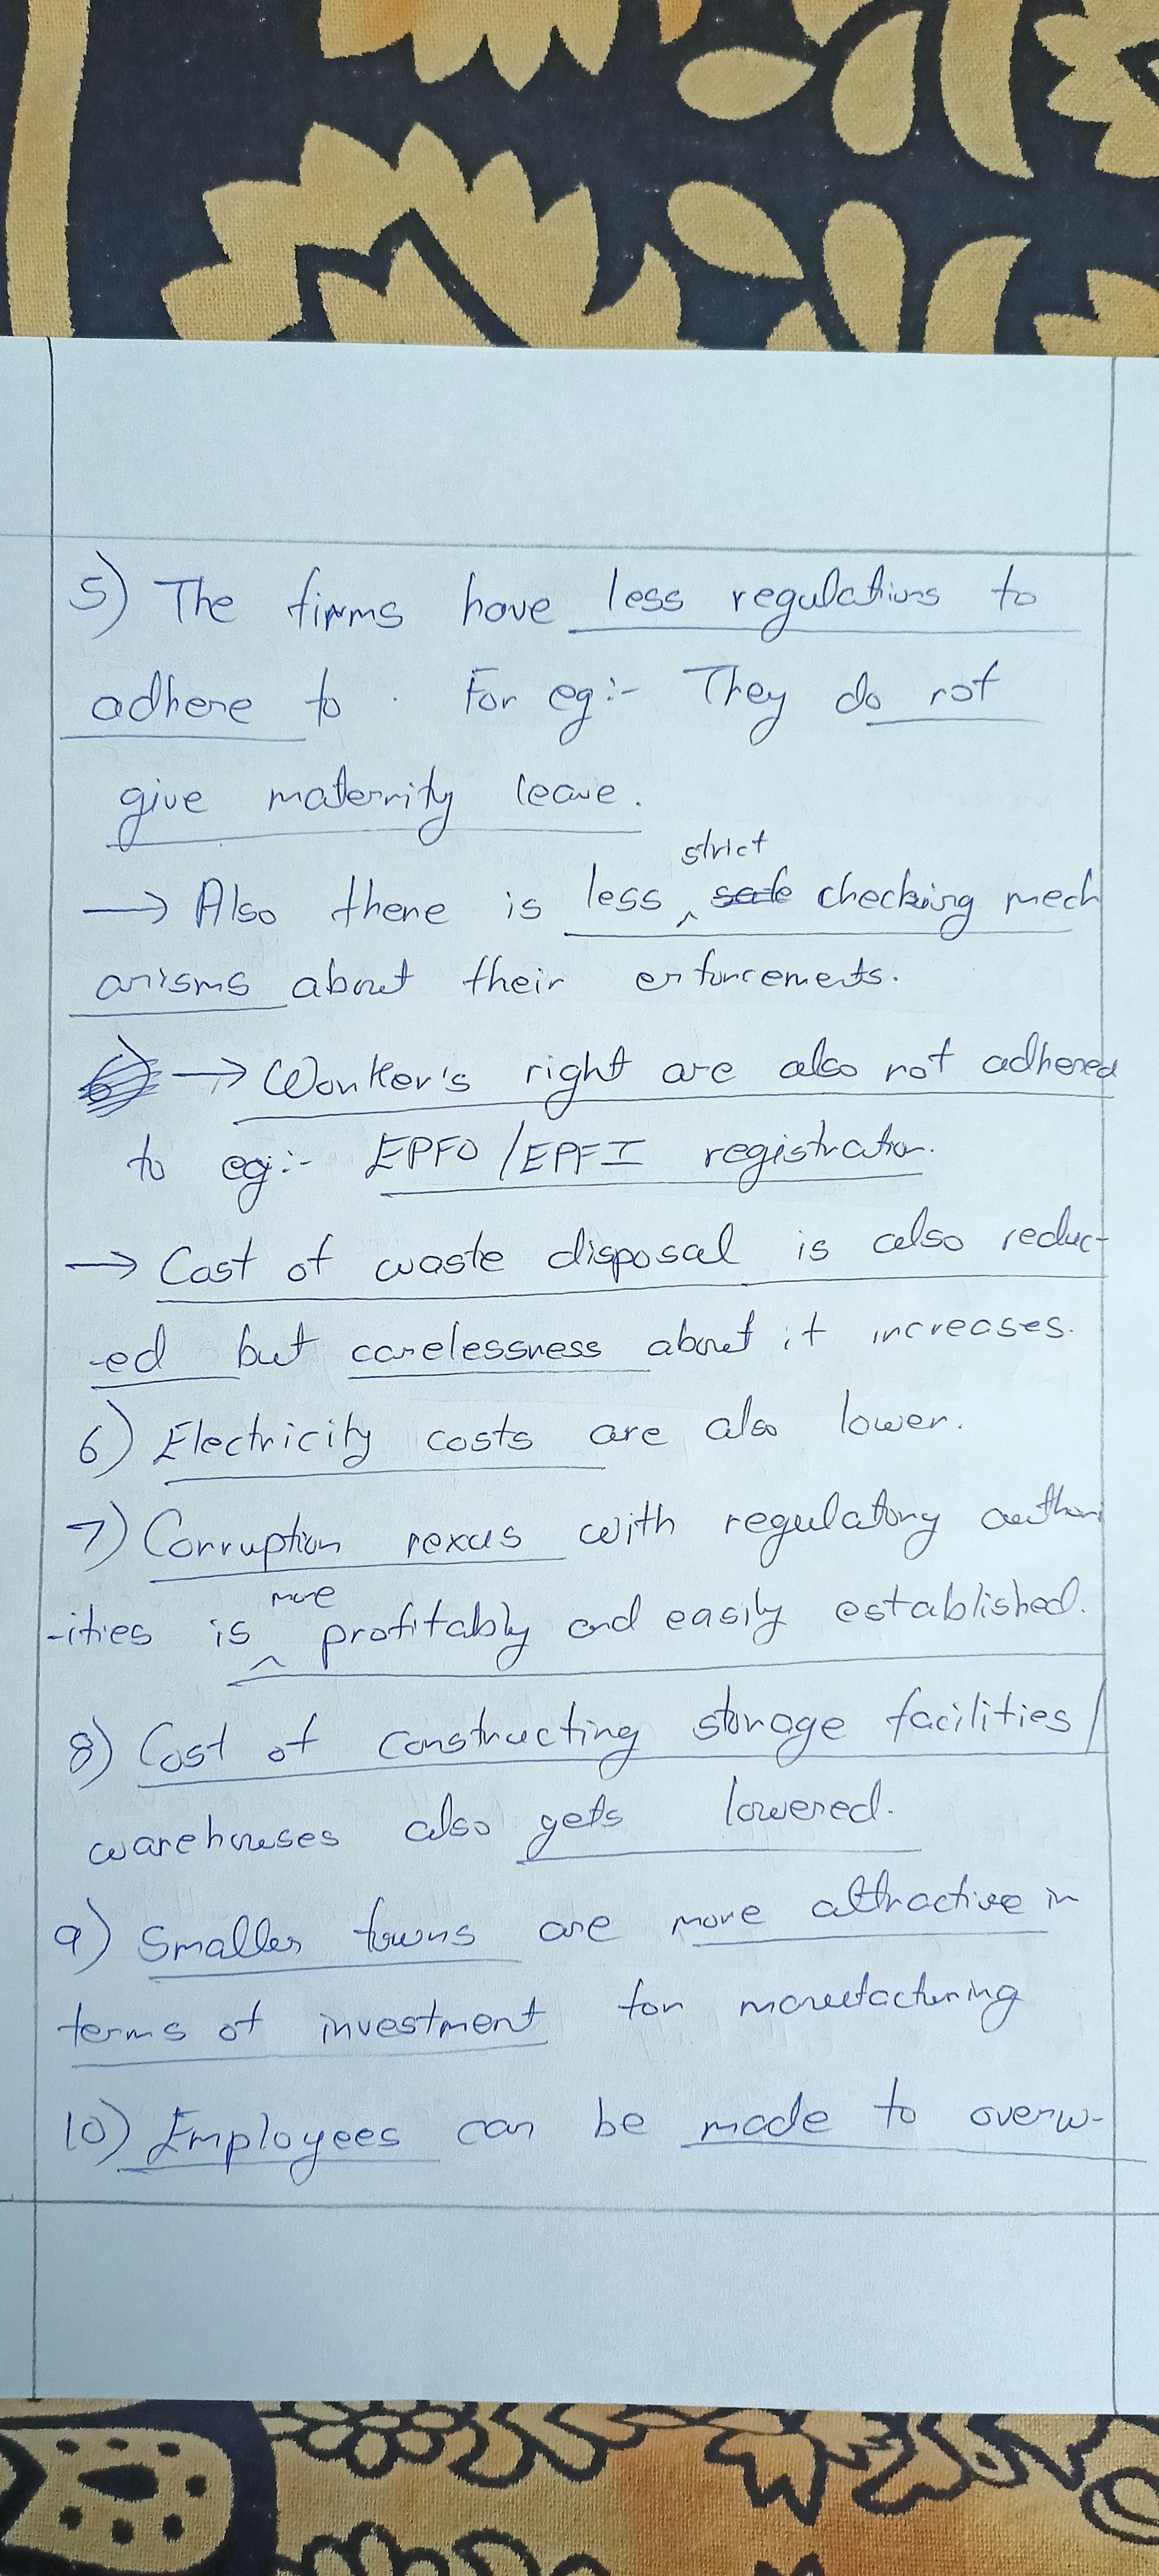 5) The firms have less regulations to
adhere to. For eg:- They do not
give maternity leave.
→ Also there is less strict checking mech
anisms about their enforcements.
→ Worker's right are also not adhered
to eg:- EPFO / EPFI registration.
→ Cost of waste disposal is also reduc-
-ed but carelessness about it increases.
6) Electricity costs are also lower.
7) Corruption nexus with regulatory author
-ities is more profitably and easily established.
8) Cost of constructing storage facilities /
warehouses also gets lowered.
9) Smaller towns are more attractive in
terms of investment for manufacturing
10) Employees can be made to overw-